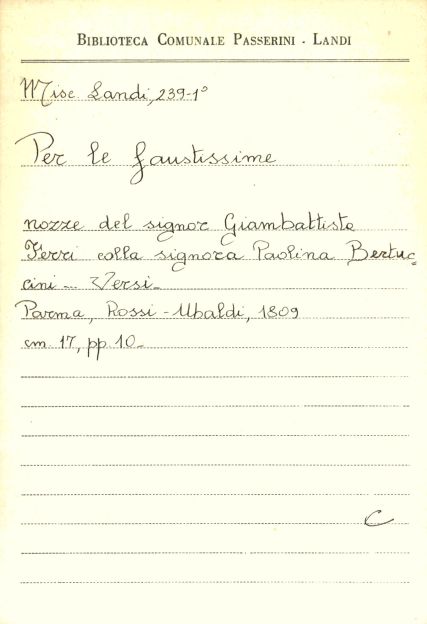 BIBLIOTECA COMUNALE PASSERINI - LANDI
Misc. Landi, 239-1°
Per le faustissime
nozze del signor Giambattista
Ferri colla signora Paolina Bertuc-
cini - Versi -
Parma, Rossi - Ubaldi, 1809
cm. 17, pp 10 -
C